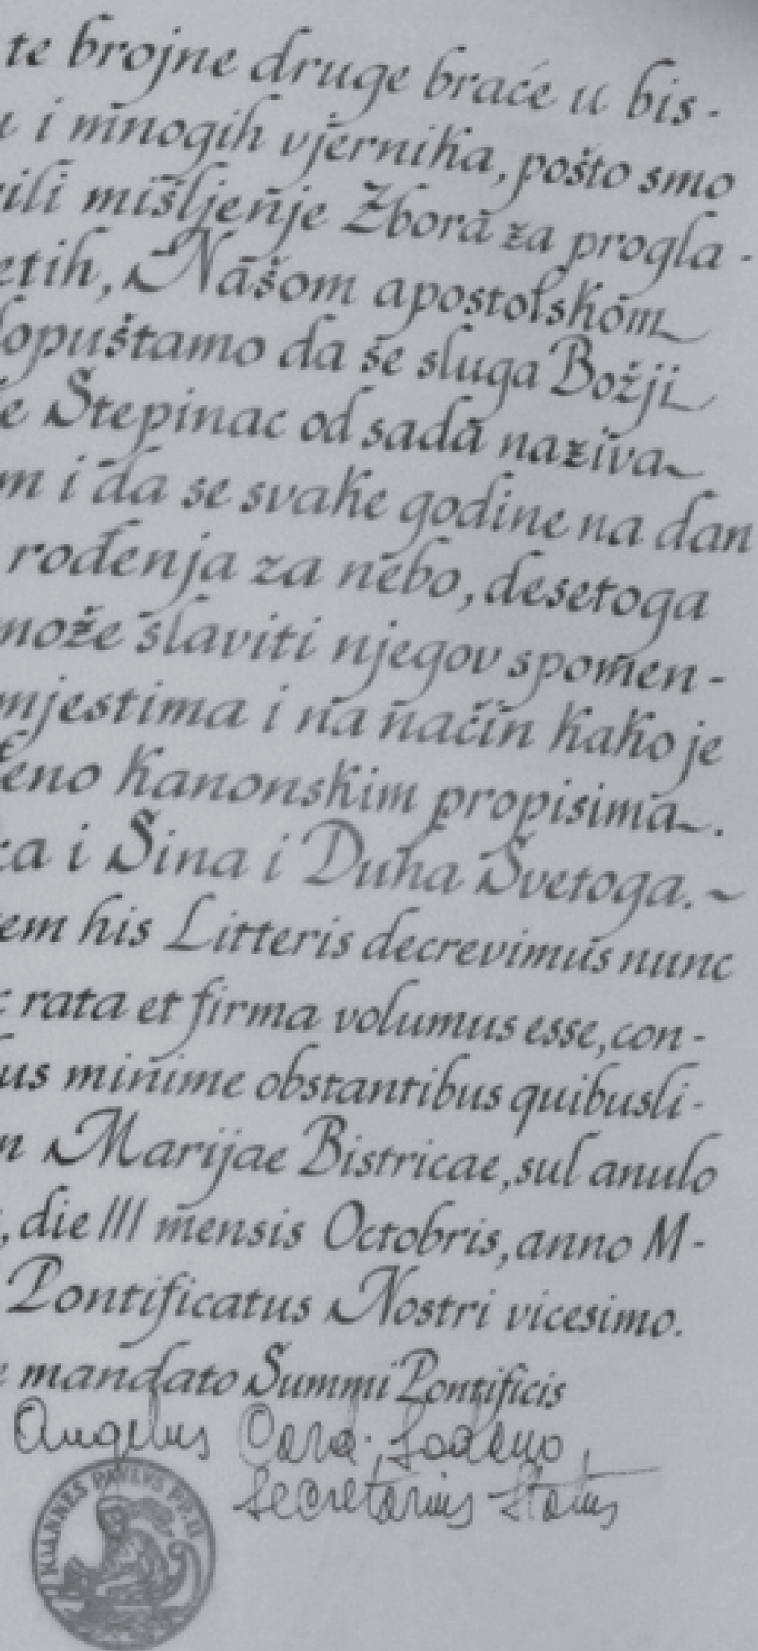 te brojne druge braće u bis-
i mnogih vjernika, pošto smo
mišljenje Zbora za progla-
Našom apostolskom
da se sluga Božji
Stepinac od sada naziva
i da se svake godine na dan
rođenja za nebo, desetoga
može slaviti njegov spomen-
mjestima i na način kako je
kanonskim propisima.
i Sina i Duha Svetoga.~
his Litteris decrevimus nunc
rata et firma volumus esse, con-
minime obstantibus quibusli-
Marijae Bistricae, sul anulo
, die III mensis Octobris, anno M-
Pontificatus Nostri vicesimo.
mandato Summi Pontificis
Angelus Card. Sodano,
Secretarius Status
IOANNES PAVLVS PP. II